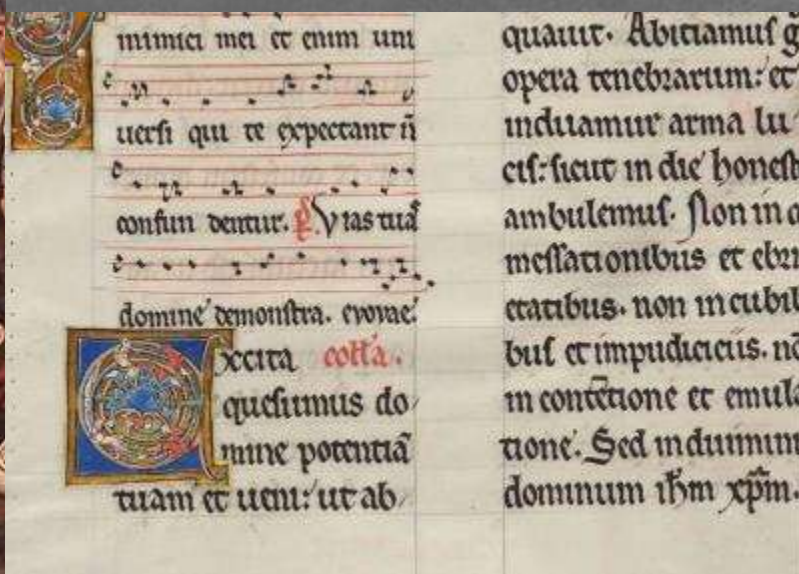 inimici mei et enim uni
uersi qui te expectant ñ
confun dentur. Vias tuas
domine demonstra. evovae.
Excita coll̄a.
quesumus do
mine potentiā
tuam et ueni: ut ab
quauit. Abiciamus g
opera tenebrarum: et
induamur arma lu
cis: sicut in die honest
ambulemus. Non in c
messationibus et ebri
etatibus. non in cubil
bus et impudiciciis. nō
in contētione et emula
tione. Sed induimini
dominum ihm xp̄m.